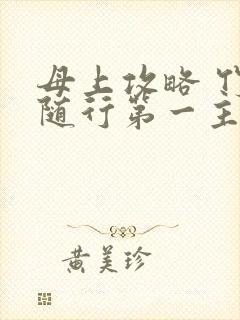 母上攻略
随行第一主
黄美珍